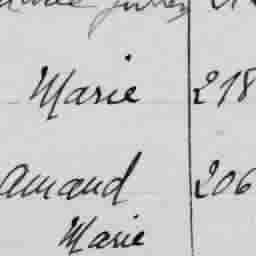 Marie 218
amand 206
Marie